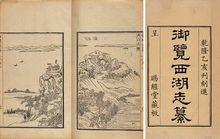 乾隆乙亥刊刻進
呈
御覽西湖志纂
賜經堂藏板